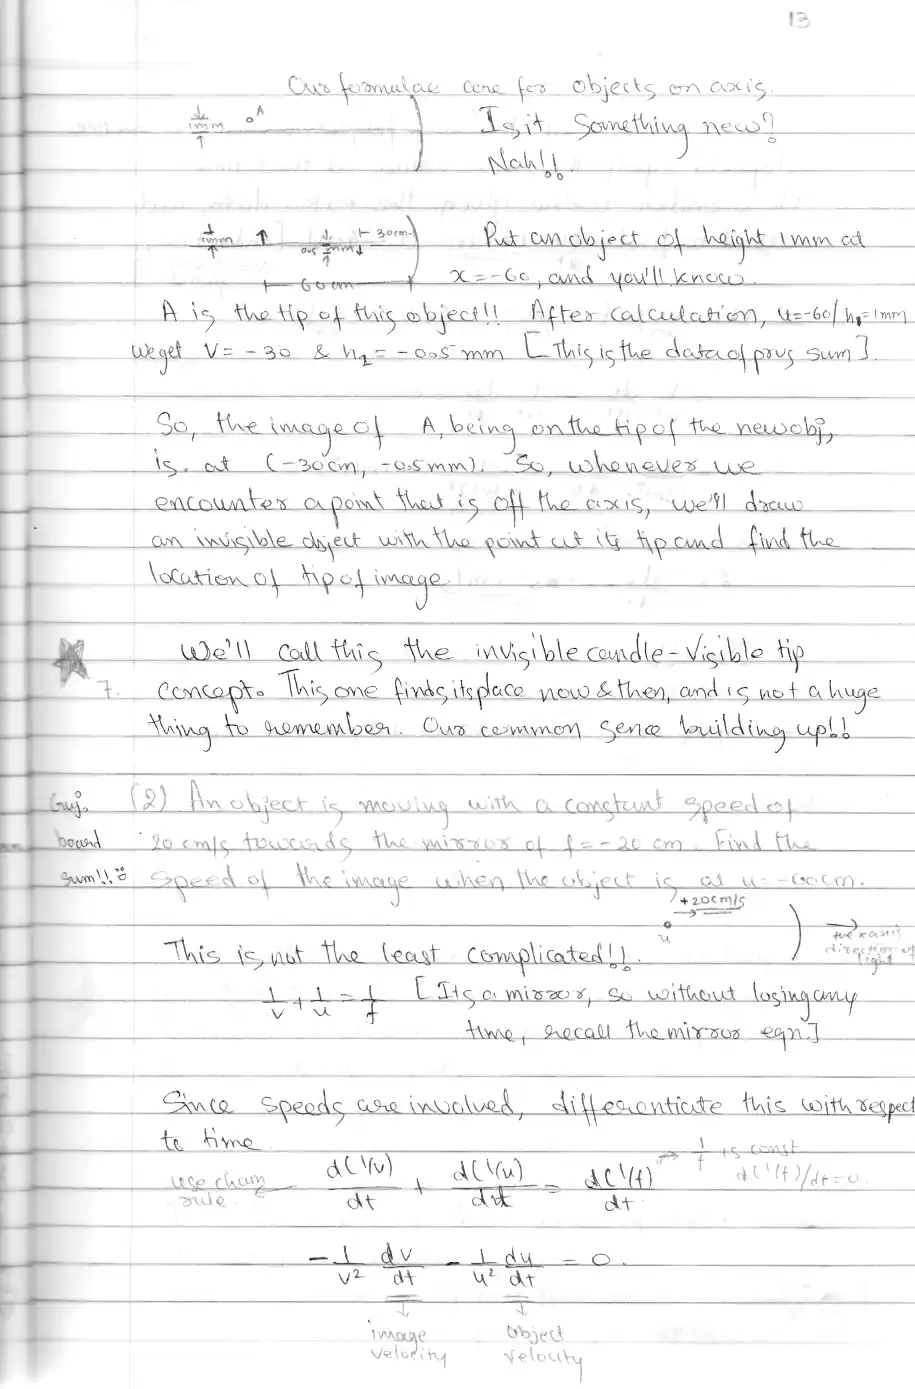 13
Our formulae are for objects on axis.
1mm A Is it something new?
Nah!!
1mm 0.5mm 30cm Put an object of height 1mm at
60 cm x = -60, and you'll know.
A is the tip of this object!! After calculation, u=-60/h₁=1mm
We get V = -30 & h₂ = -0.5 mm [This is the data of prvs sum].
So, the image of A, being on the tip of the new obj,
is at (-30cm, -0.5mm). So, whenever we
encounter a point that is off the axis, we'll draw
an invisible object with the point at its tip and find the
location of tip of image.
We'll call this the invisible candle-Visible tip
7. concept. This one finds its place now & then, and is not a huge
thing to remember. Our common sence building up!!
Guj. (2) An object is moving with a constant speed of
board 20 cm/s towards the mirror of f = -20 cm. Find the
sum!! speed of the image when the object is at u = -60cm.
+20cm/s
u +ve x axis
direction of
light
This is not the least complicated!!
1/v + 1/u = 1/f [Its a mirror, so without losing any
time, recall the mirror eqn.]
Since speeds are involved, differentiate this with respect
to time
use chain rule. d(1/v)/dt + d(1/u)/dt = d(1/f)/dt 1/f is const d(1/f)/dt = 0.
-1/v² dv/dt - 1/u² du/dt = 0.
image Object
velocity velocity